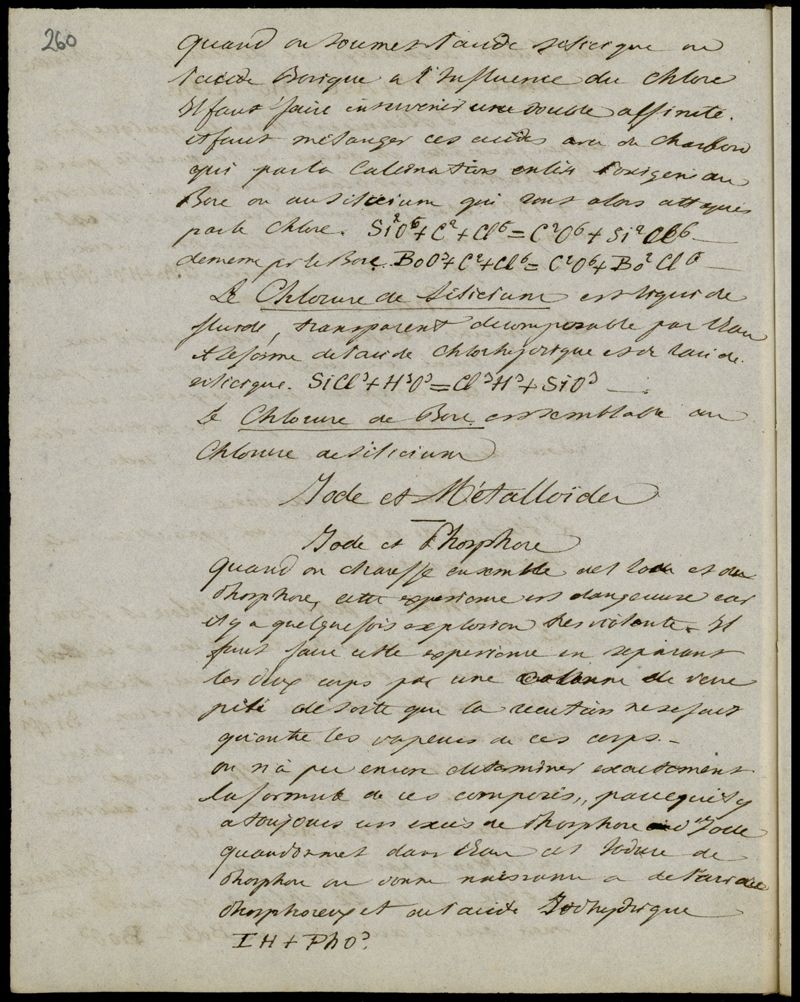 260
quand on soumet l'acide silicique ou
l'acide Borique a l'Influence du Chlore
Il faut faire intervenir une double affinité.
il faut mélanger ces acides avec du charbon
qui par la Calcination enlève l'oxigene au
Bore ou au silicium qui sont alors attaqués
par le Chlore. Si²O⁶+C²+Cl⁶=C²O⁶+Si²Cl⁶ —
de meme pr le Bore. BoO³+C²+Cl⁶= C²O⁶+Bo²Cl⁶ —
Le Chlorure de Silicium est liquide
fluide, transparent decomposable par l'eau
et se forme de l'acide chlorhydrique et de l'acide
silicique. SiCl³+H³O³=Cl³H³+SiO³ —
Le Chlorure de Bore est semblable au
Chlorure de silicium
Iode et Métalloïdes
Iode et Phosphore
quand on chauffe ensemble de l'Iode et du
Phosphore, cette experience est dangereuse car
il y a quelquefois explosion tres violente. Il
faut faire cette experience en separant
les deux corps par une colonne de verre
pilé de sorte que la reaction ne se fait
qu'entre les vapeurs de ces corps. —
on n'à pu encore determiner exactement
la formule de ces composés, parcequ'il y
a toujours un exces de Phosphore ou d'Iode
quand on met dans l'eau cet Iodure de
Phosphore on donne naissance a de l'acide
Phosphoreux et de l'acide Iodhydrique
IH+PhO³